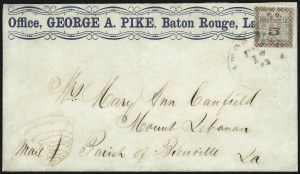 Office, GEORGE A. PIKE. Baton Rouge, La
P.O.
5
Mrs Mary Ann Canfield
Mount Lebanan
Mail Parish of Bienville
La